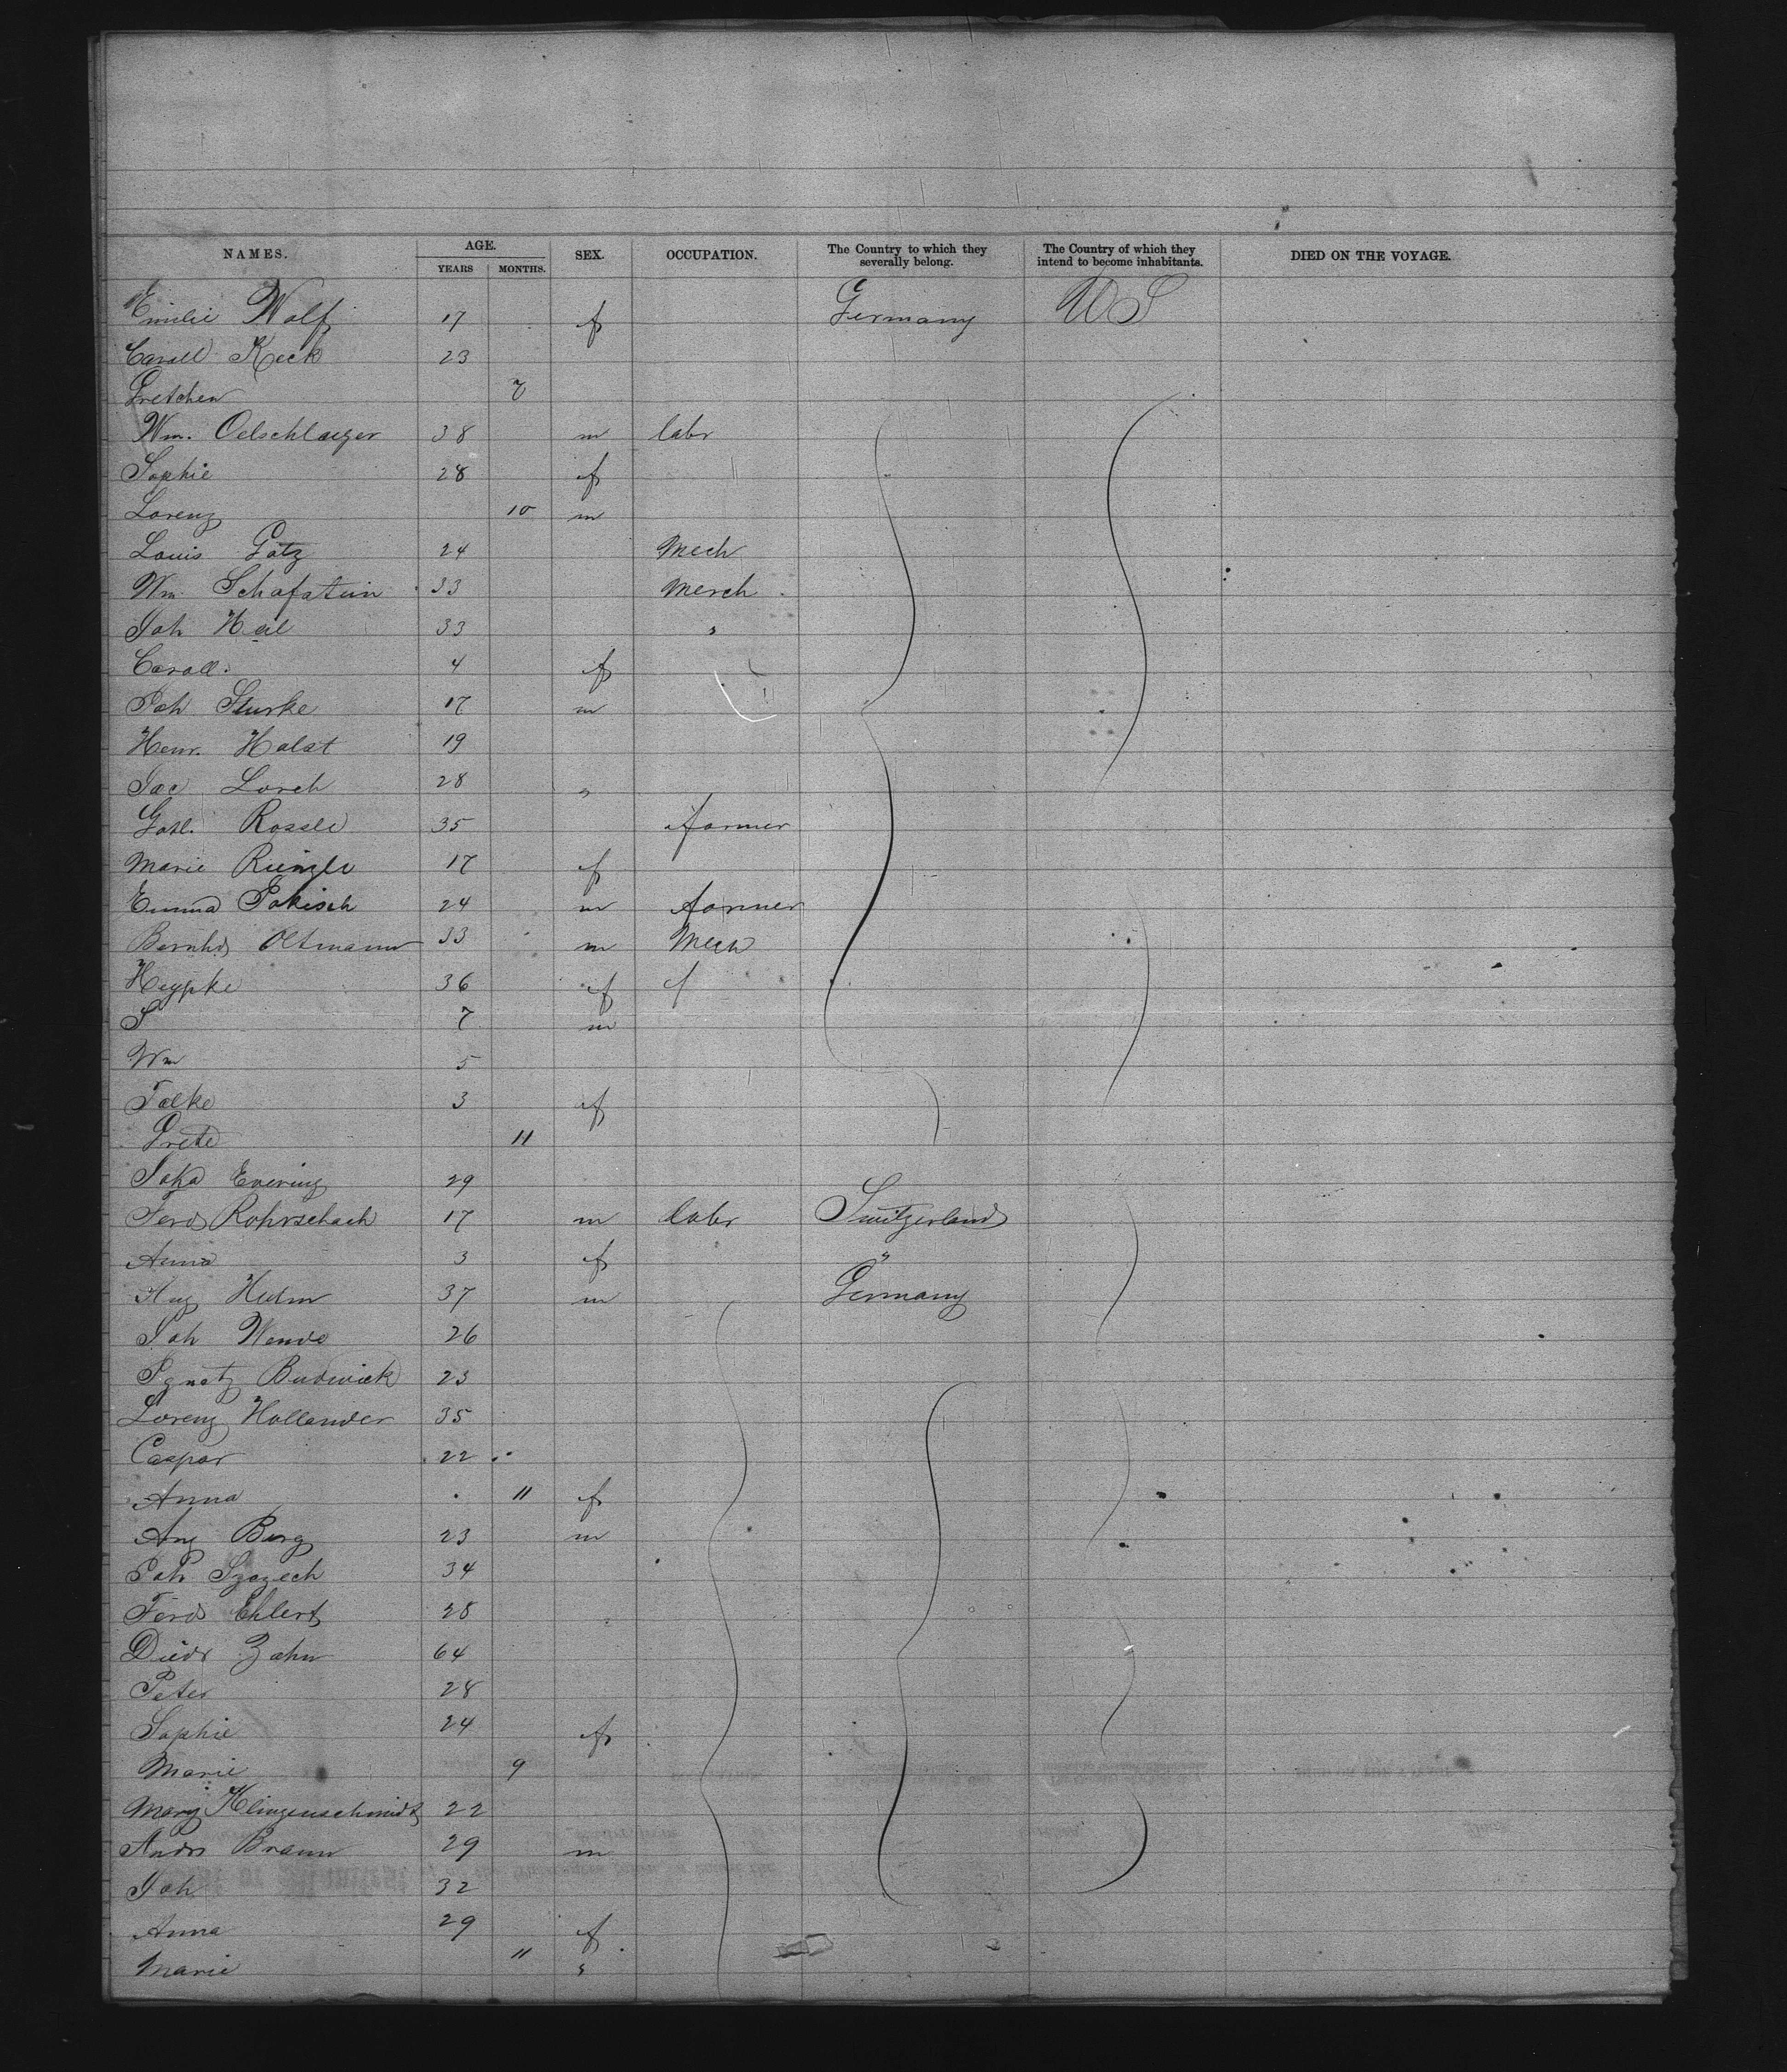 NAMES. AGE. YEARS MONTHS. SEX. OCCUPATION. The Country to which they severally belong. The Country of which they intend to become inhabitants. DIED ON THE VOYAGE.
Emilie Wolf 17 f Germany US
Caroll Keck 23
Gretchen 7
Wm. Oelschlaeger 38 m labr
Sophie 28 f
Lorenz 10 m
Louis Gotz 24 Mech
Wm. Schafstein 33 Merch
Joh Heil 33 "
Caroll. 4 f
Joh Sturke 17 m
Henr. Holst 19
Jac Lorch 28 "
Gotl. Rossle 35 farmer
Marie Ruingle 17 f
Emma Jakisch 24 m farmer
Bernhd Oltmann 33 m Mech
Heypke 36 f f
S 7 m
Wm 5
Folke 3 f
Grete 11
Joka Evering 29
Ferd Rohrschach 17 m labr Switzerland
Anna 3 f "
Aug Hulm 37 m Germany
Joh Wende 26
Ignatz Budwick 23
Lorenz Hollander 35
Caspar 22
Anna 11 f
Aug Berg 23 m
Joh Szozech 34
Ferd Ehlert 28
Diedr Zahn 64
Peter 28
Sophie 24 f
Marie 9
Mary Klingenschmidt 22
Andr Braun 29 m
Joh 32
Anna 29 f
Marie 11 "